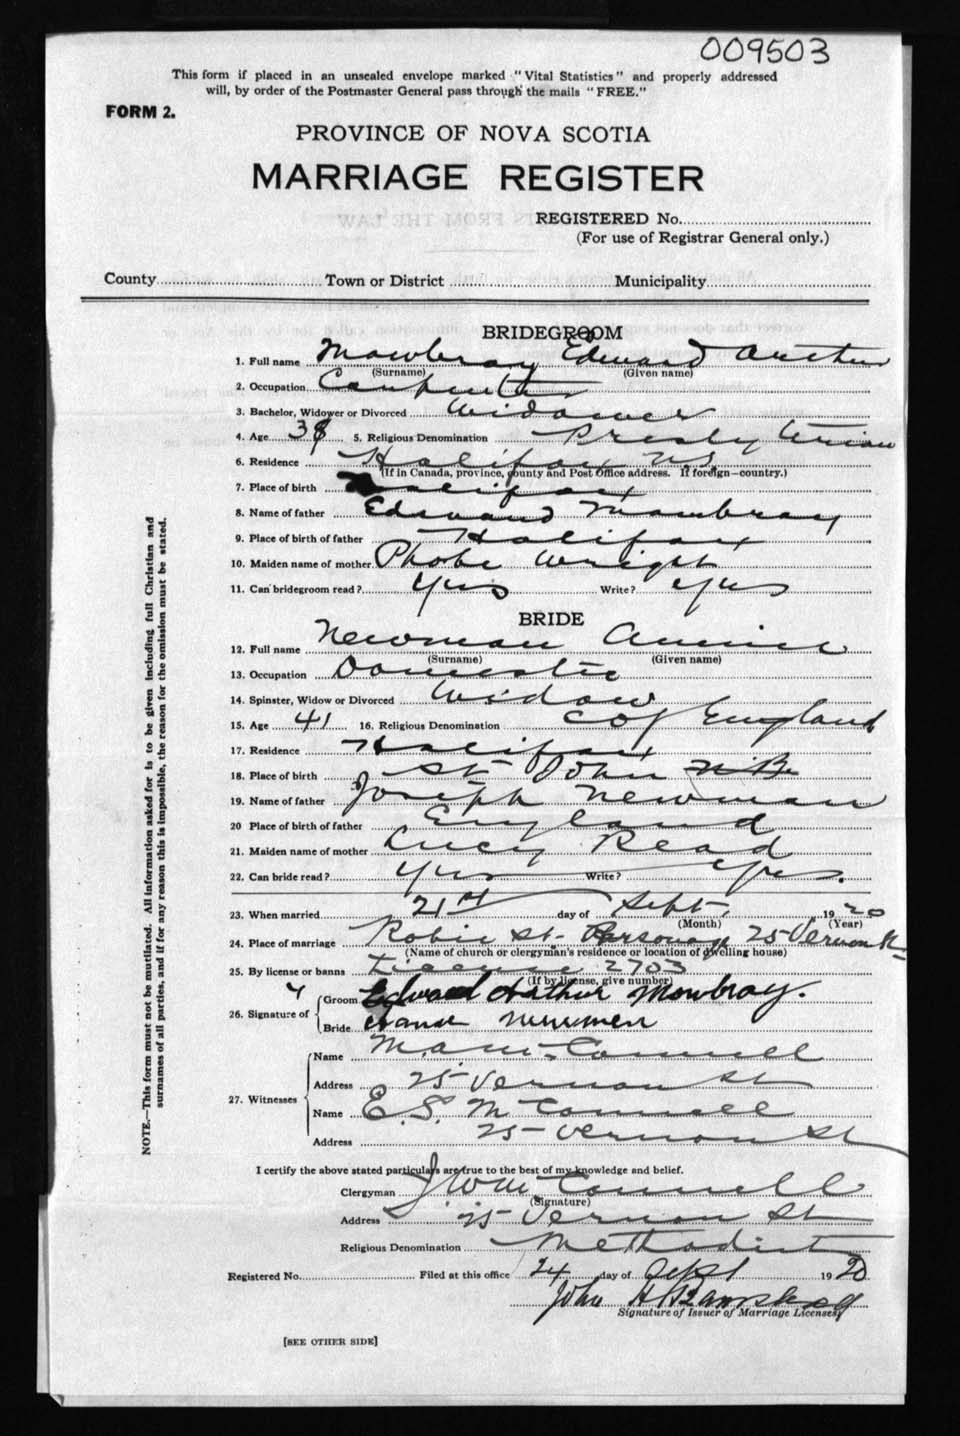 009503
This form if placed in an unsealed envelope marked "Vital Statistics" and properly addressed
will, by order of the Postmaster General pass through the mails "FREE."
FORM 2.
PROVINCE OF NOVA SCOTIA
MARRIAGE REGISTER
REGISTERED No.
(For use of Registrar General only.)
County Town or District Municipality
BRIDEGROOM
1. Full name Mowbray Edward Arthur
(Surname) (Given name)
2. Occupation Carpenter
3. Bachelor, Widower or Divorced Widower
4. Age 38 5. Religious Denomination Presbyterian
6. Residence Halifax N.S.
(If in Canada, province, county and Post Office address. If foreign—country.)
7. Place of birth Halifax
8. Name of father Edward Mowbray
9. Place of birth of father Halifax
10. Maiden name of mother Phobe Wright
11. Can bridegroom read? Yes Write? Yes
BRIDE
12. Full name Newman Annie
(Surname) (Given name)
13. Occupation Domestic
14. Spinster, Widow or Divorced Widow
15. Age 41 16. Religious Denomination C of England
17. Residence Halifax
18. Place of birth St John N.B.
19. Name of father Joseph Newman
20 Place of birth of father England
21. Maiden name of mother Lucy Read
22. Can bride read? Yes Write? Yes.
23. When married 21st day of Sept. 1920
(Month) (Year)
24. Place of marriage Robie St. Parsonage 25 Vernon St
(Name of church or clergyman's residence or location of dwelling house)
25. By license or banns License 2703
(If by license, give number)
26. Signature of Groom Edward Arthur Mowbray.
Bride Newmen
27. Witnesses
Name M.A. McConnell
Address 25 Vernon St
Name E.S. McConnell
Address 25 Vernon St
I certify the above stated particulars are true to the best of my knowledge and belief.
Clergyman J W McConnell
(Signature)
Address 25 Vernon St
Religious Denomination Methodist
Registered No. Filed at this office 24 day of Sept 1920
John H
Signature of Issuer of Marriage Licenses,
[SEE OTHER SIDE]
NOTE.—This form must not be mutilated. All information asked for is to be given including full Christian and
surnames of all parties, and if for any reason this is impossible, the reason for the omission must be stated.